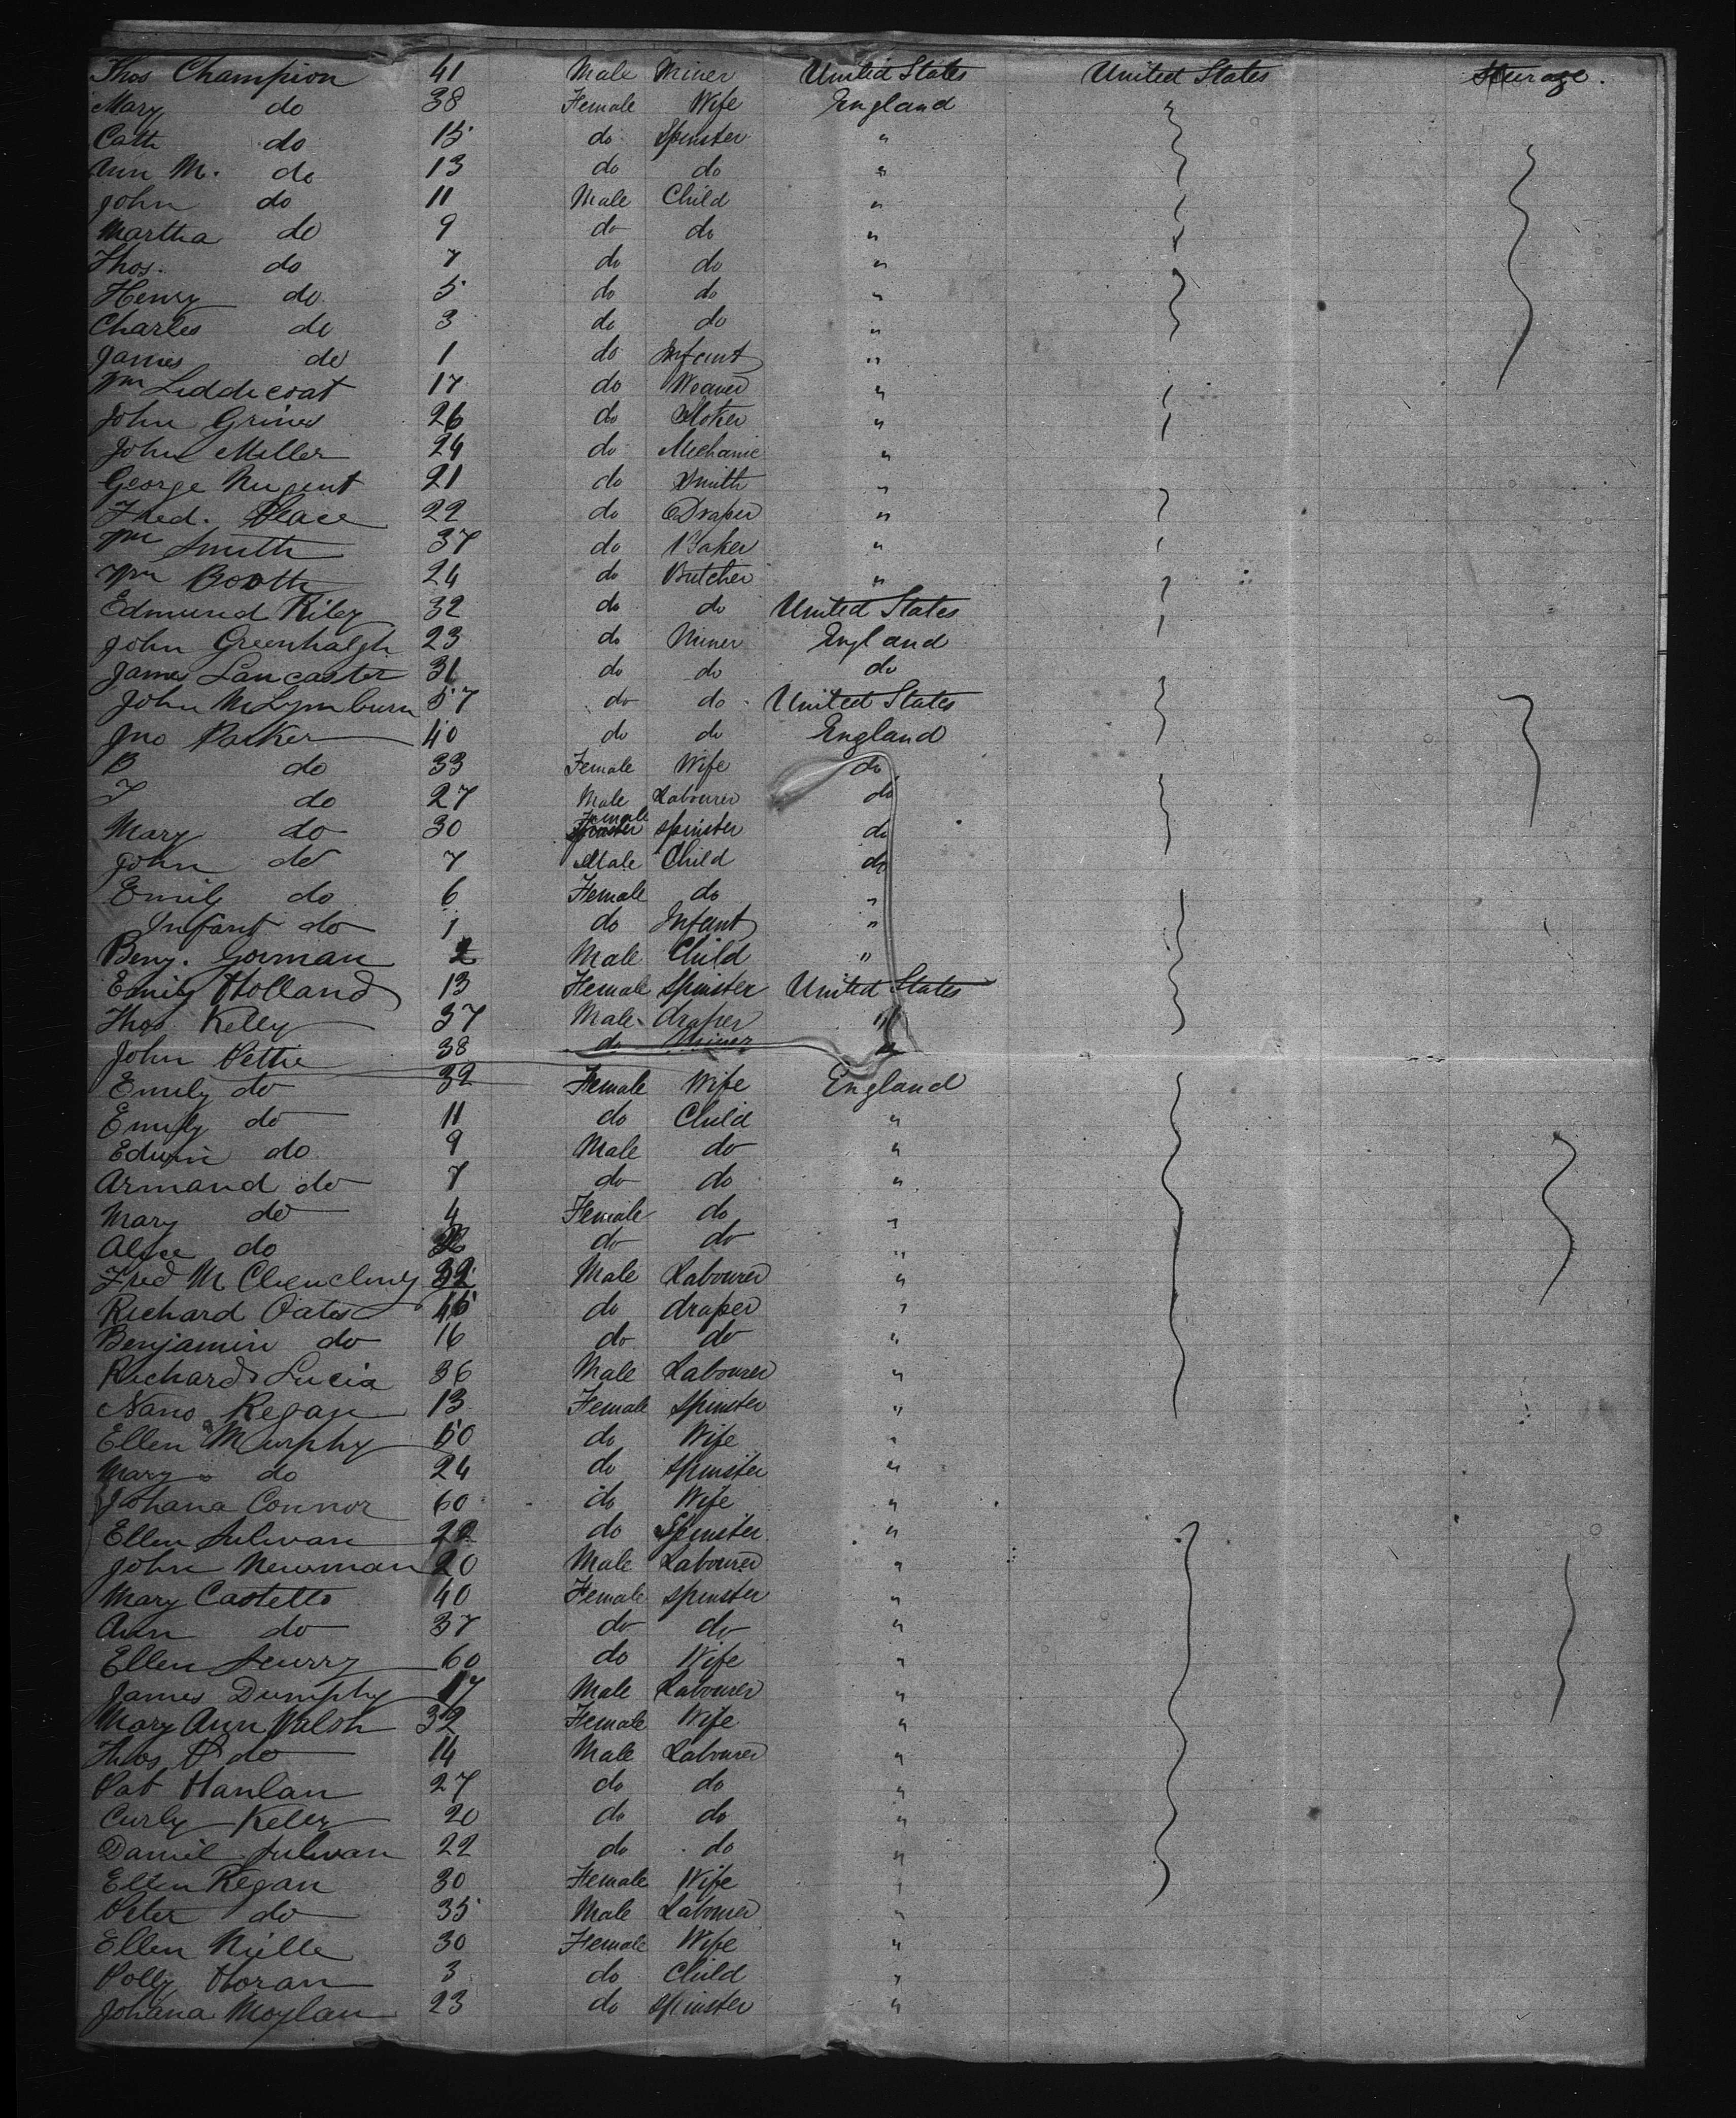 Thos Champion 41 Male Miner United States United States Steerage.
Mary do 38 Female Wife England "
Cath do 15 do Spinster "
Ann M. do 13 do do "
John do 11 Male Child "
Martha do 9 do do "
Thos. do 7 do do "
Henry do 5 do do "
Charles do 3 do do "
James do 1 do Infant "
Wm Liddicoat 17 do Weaver "
John Grines 26 do Stoker "
John Miller 24 do Mechanic "
George Nugent 21 do Smith "
Fred. Place 22 do Draper "
Wm Smith 37 do Baker "
Wm Booth 24 do Butcher "
Edmund Riley 32 do do United States
John Greenhalgh 23 do Miner England
James Lancaster 31 do do do
John McLymburn 57 do do United States
Jno Parker 40 do do England
B do 33 Female Wife do
T do 27 Male Labourer do
Mary do 30 Female spinster do
John do 7 Male Child do
Emily do 6 Female do "
Infant do 1 do Infant "
Benj. Gorman 2 Male Child "
Emily Holland 13 Female Spinster United States
Thos Kelly 37 Male draper "
John Pettie 38 do Miner "
Emily do 32 Female Wife England
Emily do 11 do Child "
Edwin do 9 Male do "
Armand do 7 do do "
Mary do 4 Female do "
Alice do do do "
Fred 32 Male Labourer "
Richard Oates 45 do draper "
Benjamin do 16 do do "
Richard Lucia 36 Male Labourer "
Nano Regan 13 Female Spinster "
Ellen Murphy 50 do Wife "
Mary do 24 do spinster "
Johana Connor 60 do Wife "
Ellen Sulivan 22 do Spinster "
John Newman 20 Male Labourer "
Mary Costello 40 Female spinster "
Ann do 37 do do "
Ellen Scurry 60 do Wife "
James Dumphy 17 Male Labourer "
Mary Ann Walsh 32 Female Wife "
Thos P do 14 Male Labourer "
Pat Hanlan 27 do do "
Curly Kelly 20 do do "
Daniel Sulivan 22 do do "
Ellen Regan 30 Female Wife "
Peter do 35 Male Labourer "
Ellen Nielle 30 Female Wife "
Polly Horan 3 do Child "
Johana Moylan 23 do spinster "